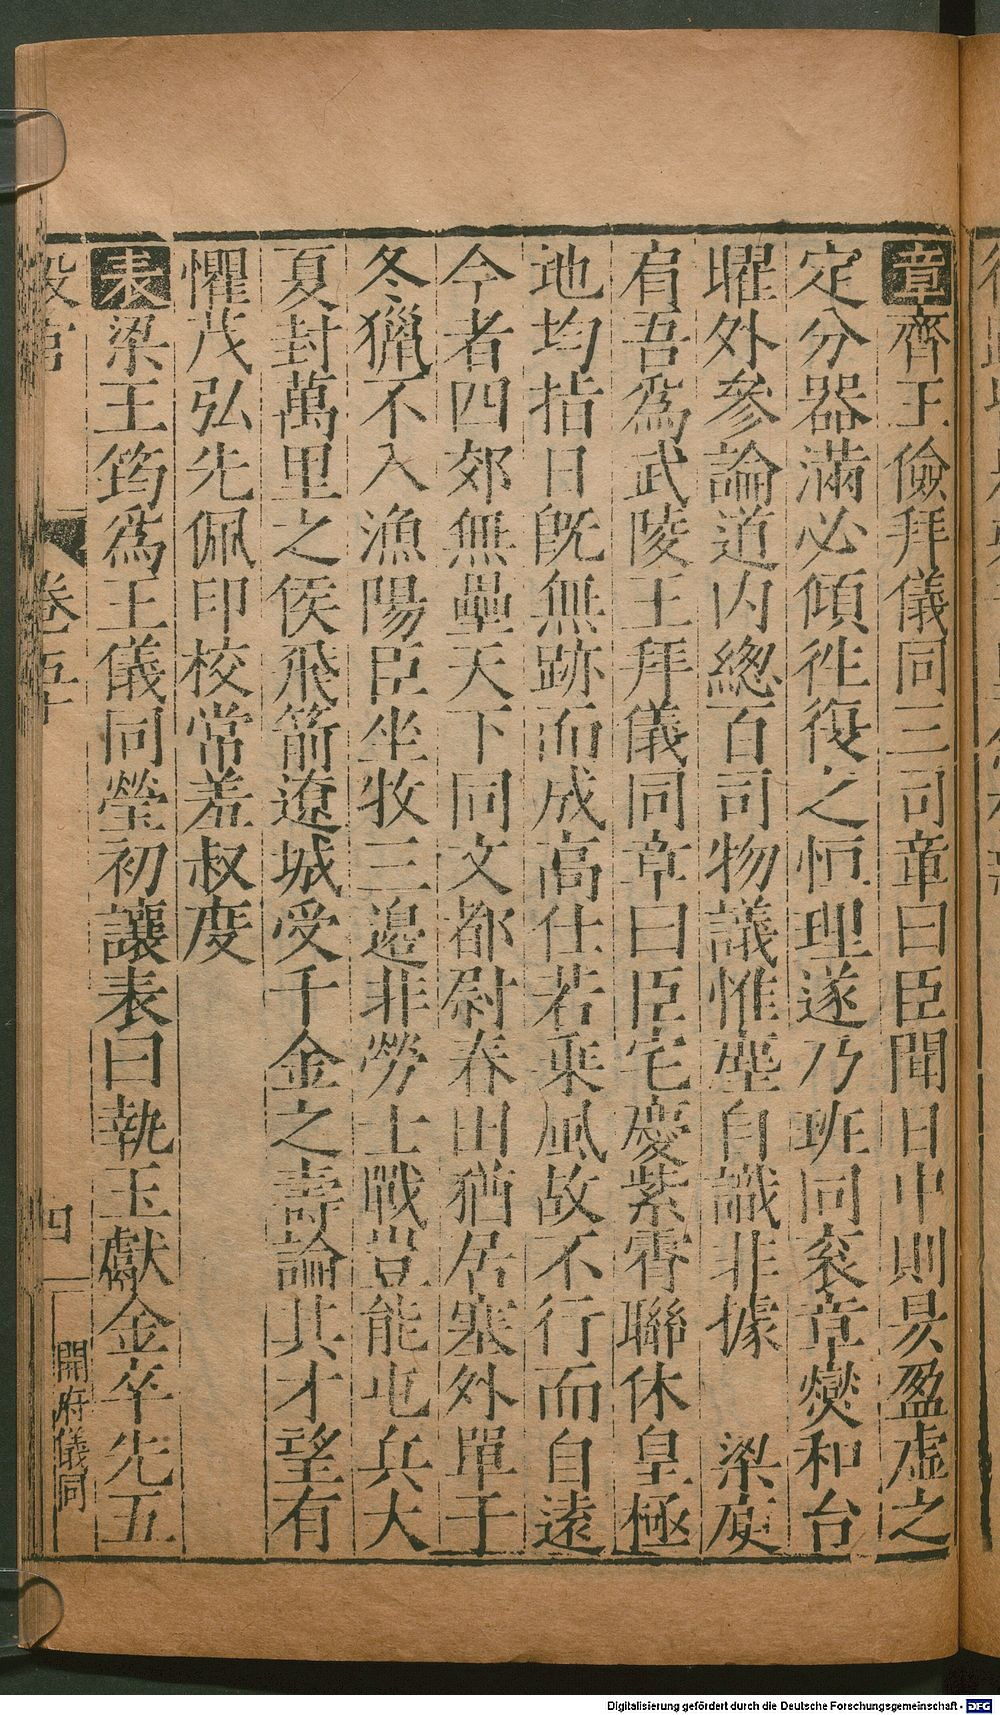 章齊王儉拜儀同三司章曰臣聞日中則昃盈虛之
定分器滿必傾徃復之恒理遂乃班同衮章爕和台
曜外參論道内緫百司物議惟塵自識非據 梁庾
肩吾爲武陵王拜儀同章曰臣宅慶紫霄聯休皇極
地均指日旣無跡而成高仕若乘風故不行而自遠
今者四郊無壘天下同文都尉春田猶居塞外單于
冬獵不入漁陽臣坐牧三邉非勞士戰豈能屯兵大
夏封萬里之侯飛箭遼城受千金之壽論其才望有
懼茂弘先佩印校常羞叔度
表梁王筠爲王儀同瑩初讓表曰執玉獻金卒先五
卷五十
四
開府儀同
Digitalisierung gefördert durch die Deutsche Forschungsgemeinschaft - DFG